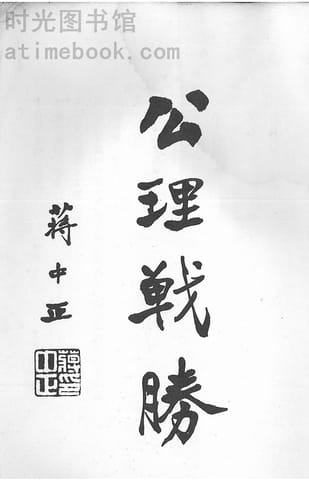 时光图书馆
atimebook.com
公理戰勝
蔣中正
蔣中正印